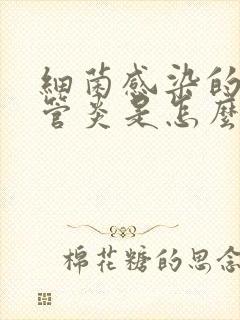 細菌感染的
管炎是怎麼
棉花糖的思念